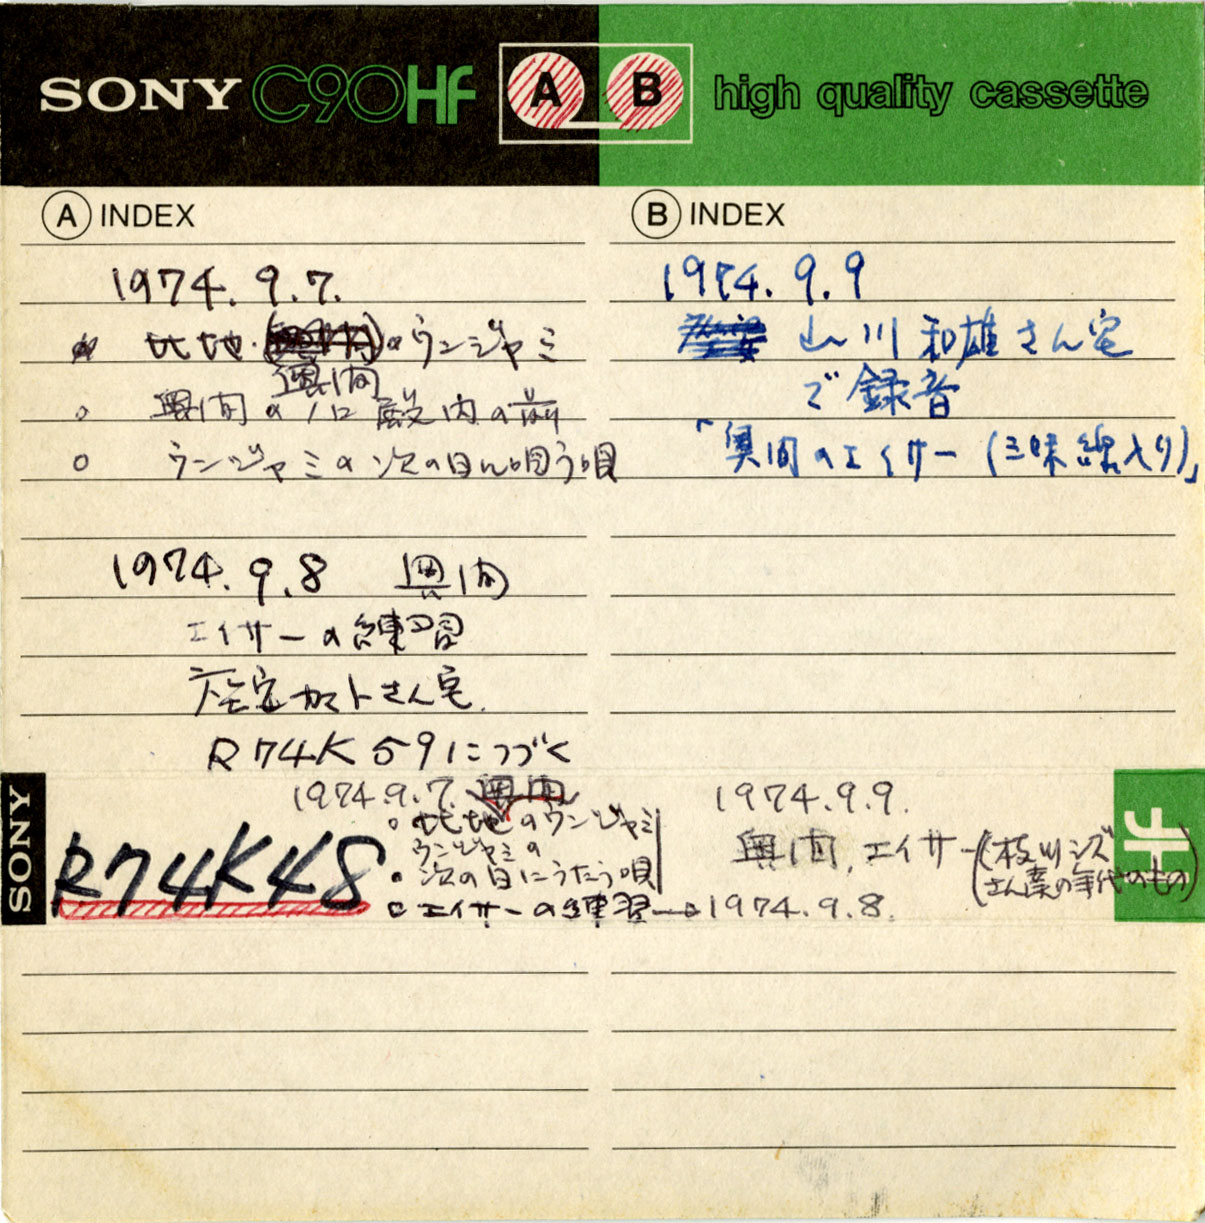 SONY C90HF A B high quality cassette
A INDEX
1974.9.7.
比地・( )のウンジャミ
奥間
奥間のノロ殿内の前
ウンジャミの次の日に唄う唄
1974.9.8 奥間
エイサーの練習
座安カマトさん宅
R74K59につづく
B INDEX
1974.9.9
山川和雄さん宅
で録音
「奥間のエイサー(三味線入り)」
SONY
R74K48
1974.9.7. 奥間
比地のウンジャミ
ウンジャミの
次の日にうたう唄
エイサーの練習→1974.9.8.
1974.9.9.
奥間、エイサー(枝川シズ
さん達の年代のもの)
HF